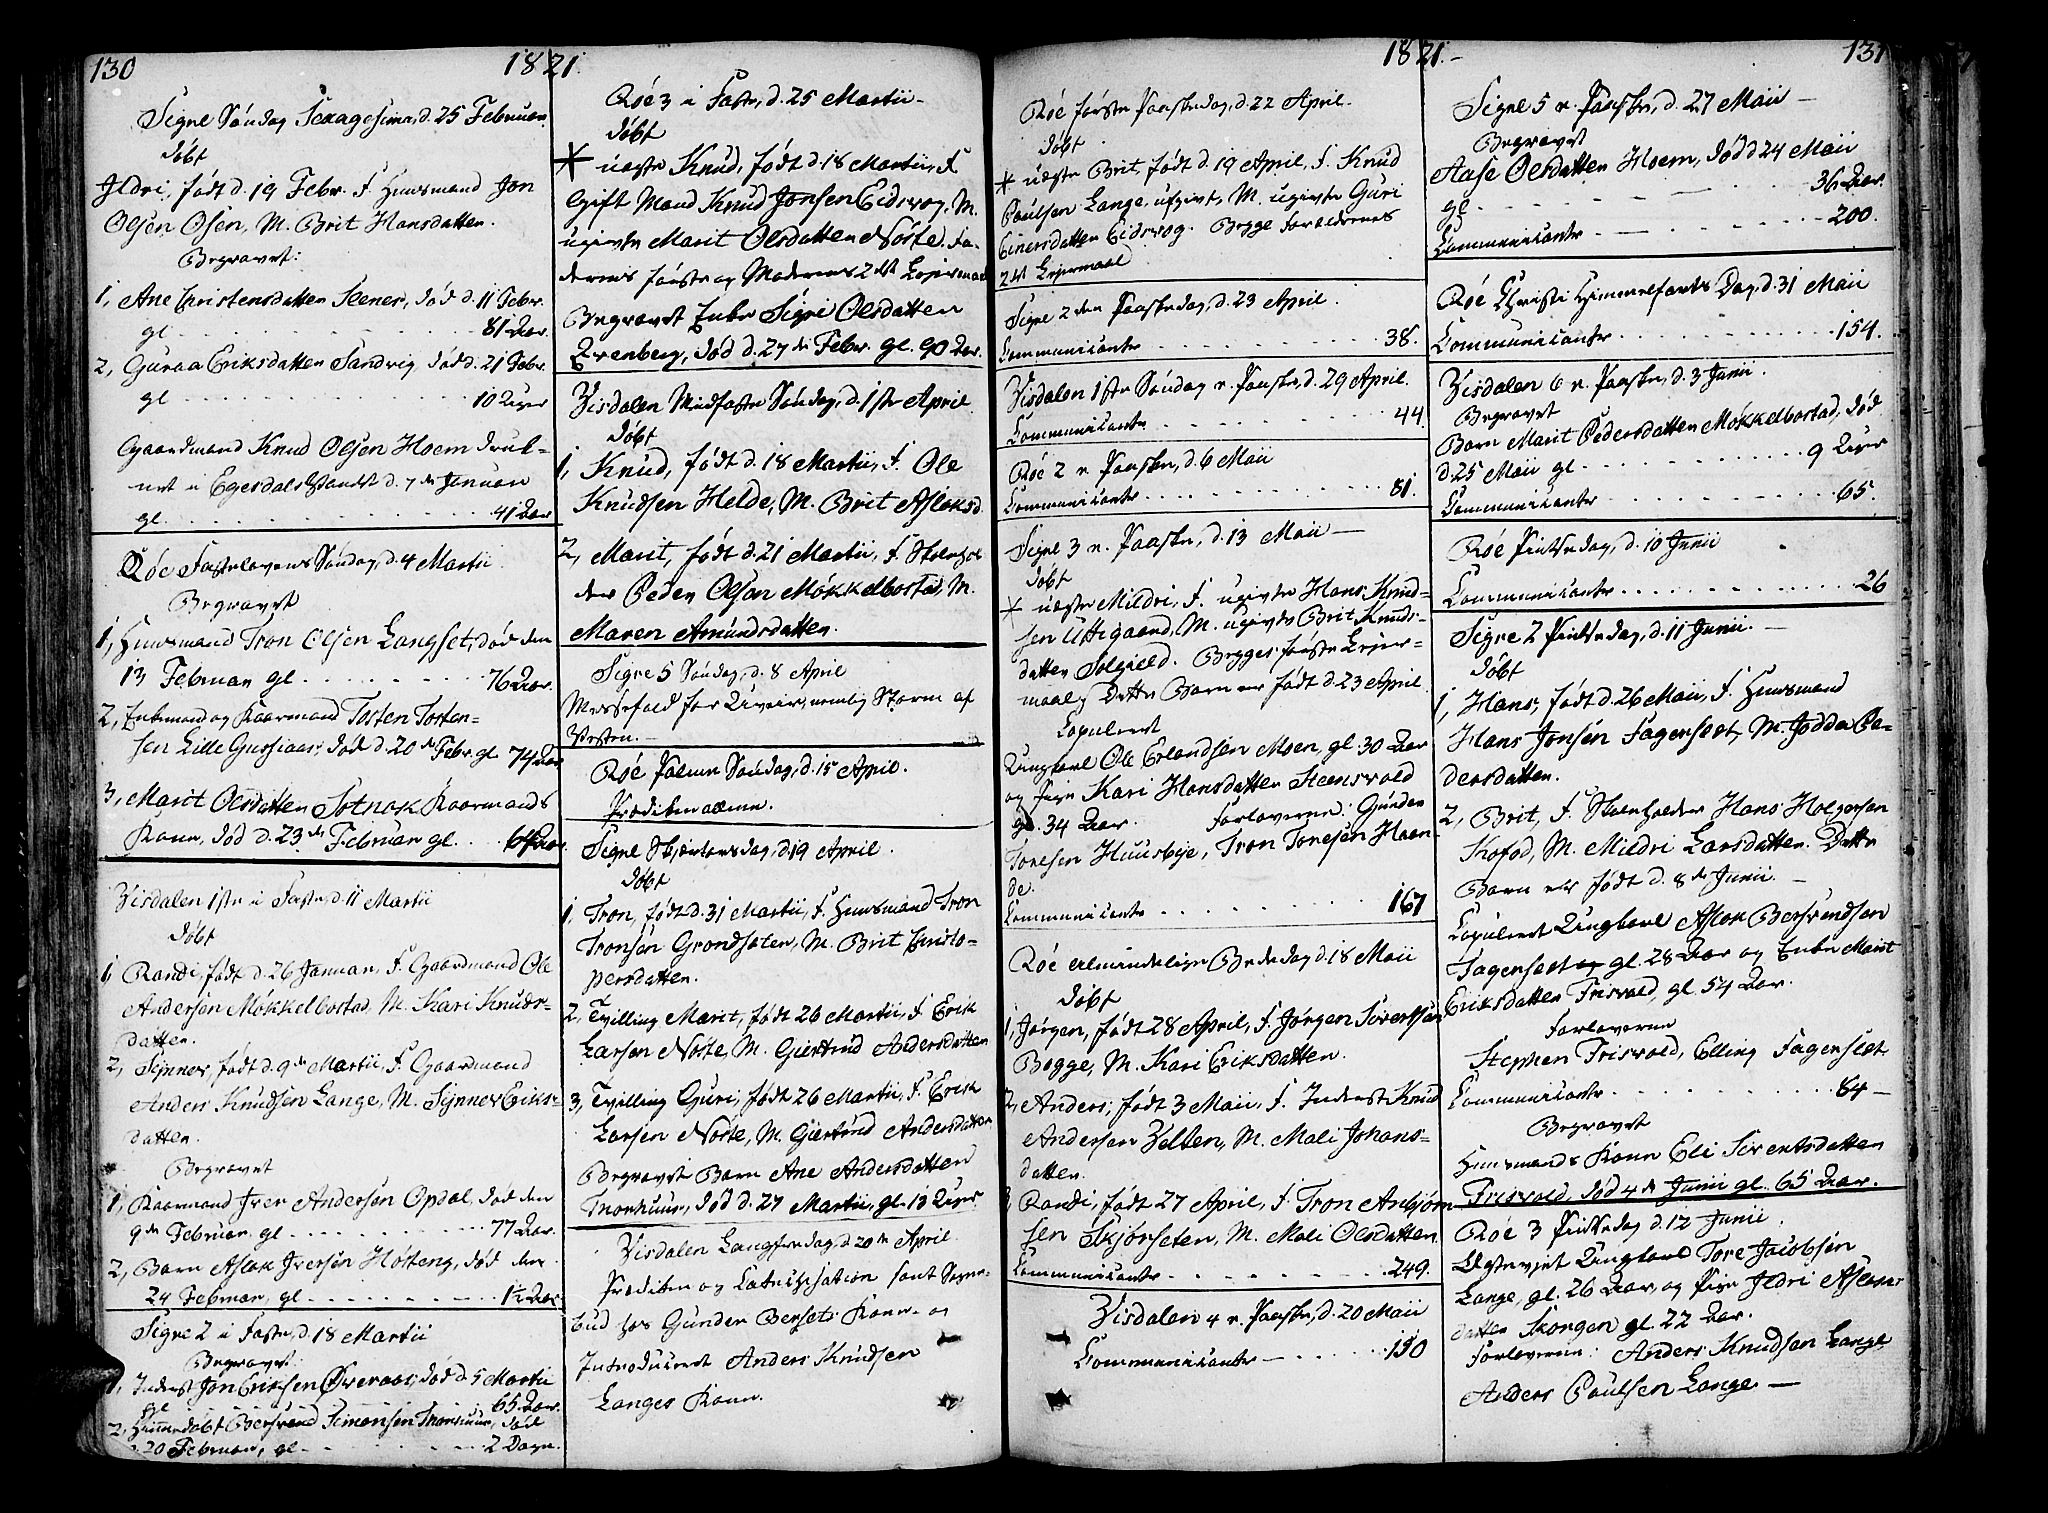 130
1821.
Signe Søndag Sexagesima, d. 25 Februari
Døbt
Ildri, født d. 19 Febr. F. Huusmand Jon
Olsen Osen, M. Brit Hansdatten.
Begravet:
1, Ane Christensdatten Stenes, død d. 11 Febr.
gl. 81 Aar.
2, Guraa Eriksdatten Sandvig død d. 21 Febr.
gl 10 Uger
Gaardmand Knud Olsen Hoem druk-
net i Egesdalsvandet d. 7de Januari
gl. 41 Aar
Røe Fastelavens Søndag, d. 4 Martii
Begravet
1, Huusmand Tron Olsen Langset, død den
13 Februari gl 76 Aar.
2, Enkemand og Kaarmand Torsten Torsten-
sen Lille Gussiaas, død d. 20de Febr. gl 74 Aar
3, Marit Olsdatten Solnok Kaarmands
Kone, død d. 23de Februari gl. 64 Aar
Visdalen 1ste i Faste, d. 11 Martii
Døbt
1, Randi, født d. 26 Januari, F. Gaardmand Ole
Andersen Møkkelbostad, M. Kari Knuds-
datten.
2, Synnev, født d. 9de Martii, F. Gaardmand
Anders Knudsen Lange, M. Synnev Eriks-
datten.
Begravet
1, Kaarmand Iver Andersen Opdal, død den
9de Februari gl 77 Aar.
2, Barn Aslak Iversen Høsteng, død den
24 Februari, gl 1½ Aar
Signe 2 i Faste, d. 18 Martii
Begravet:
1, Inderst Jon Eriksen Øveraas, død d. 5 Martii
gl 65 Aar.
2, Hiemedøbt Bersvend Simonsen Tronhuus, død
d. 20 Februari, gl 2 Dage.
Røe 3 i Faste, d. 25 Martii
Døbt
* uægte Knud, født d. 18 Martii, F.
Gift Mand Knud Jonsen Eidsvog, M.
ugivte Marit Olsdatten Noste. Fa-
derens første og Moderens 2det Leiermaal
Begravet Enke Sigri Olsdatten
Ørenberg, død d. 27de Febr. gl. 90 Aar.
Visdalen Midfaste Søndag, d. 1ste April
Døbt
1, Knud, født d. 18 Martii, F. Ole
Knudsen Helde, M. Brit Aslaksd.
2, Marit, født d. 21 Martii, F. Skolehol-
der Peder Olsen Møkkelbostad, M.
Maren Amundsdatten.
Signe 5 Søndag, d. 8 April
Messefald for Uveir, nemlig Storm af
Vesten.
Røe Palme Søndag, d. 15 April.
Prædiken allene.
Signe Skjærtorsdag, d. 19 April.
Døbt
1, Tron, født d. 31 Martii, F. Huusmand Tron
Tronsen Grondsæten, M. Brit Christo-
persdatten.
2, Tvilling Marit, født 26 Martii, F. Erik
Larsen Noste, M. Giertrud Andersdatten
3, Tvilling Guri, født 26 Martii, F. Erik
Larsen Noste, M. Giertrud Andersdatten
Begravet Barn Ane Andersdatten
Tronhuus, død d. 27 Martii, gl. 13 Uger
Visdalen Langfredag, d. 20de April.
Prædiken og Catechisation samt Sogne-
bud hos Gunder Bersets Kone og
Introduceret Anders Knudsen
Langes Kone.
1821.
131
Røe første Paaskedag, d. 22 April.
Døbt
* uægte Brit, født d. 19 April, F. Knud
Paulsen Lange, ufgivt, M. ugivte Guri
Einersdatten Eidsvog. Begge Forældrenes
2det Leiermaal
Signe 2den Paaskedag, d. 23 April.
Communicanter 38.
Visdalen 1ste Søndag e. Paaske, d. 29 April.
Communicanter 44
Røe 2 e. Paaske, d. 6 Maii
Communicanter 81.
Signe 3 e. Paaske, d. 13 Maii
Døbt
* uægte Mildri, F. ugivte Hans Knud-
sen Uttigaard, M. ugivte Brit Knuds-
datten Solgield. Begges første Leier-
maal, Dette Barn er født d. 23 April
Copuleret
Ungkarl Ole Erlandsen Moen, gl. 30 Aar
og Pige Kari Hansdatten Steensvold
gl. 34 Aar. Forloverne: Gunder
Toresen Huusbye, Tron Toresen Haan-
de.
Communicanter 167
Røe almindelige Bededag d. 18 Maii
Døbt
1, Jørgen, født 28 April, F. Jørgen Sivertsen
Bogge, M. Kari Eriksdatten.
2, Anders, født 3 Maii, F. Inderst Knud
Andersen Velten, M. Mali Johans-
datten
3, Randi, født 27 April, F. Tron Anbjørn
sen Skjørseten, M. Mali Olsdatten
Communicanter 249.
Visdalen 4 e. Paaske, d. 20 Maii
Communicanter 130
Signe 5 e. Paaske, d. 27 Maii
Begravet
Aase Olsdatten Hoem, død 24 Maii
gl. 36 Aar.
Communicanter 200.
Røe Christi Himmelfarts Dag, d. 31 Maii
Communicanter 154.
Visdalen 6 e. Paaske, d. 3 Junii.
Begravet
Barn Marit Pedersdatten Møkkelbostad, død
d. 25 Maii gl. 9 Uger
Communicanter 65.
Røe Pintsedag, d. 10 Junii
Communicanter 26
Signe 2 Pintsedag, d. 11 Junii.
Døbt
1, Hans, født d. 26 Maii, F. Huusmand
Hans Jonsen Fagerslet, M. Jodda Pe-
dersdatten.
2, Brit, F. Skoleholder Hans Holgersen
Kofod, M. Mildri Larsdatten. Dette
Barn er født d. 8de Junii.
Copuleret Ungkarl Aslak Bersvendsen
Fagerslet og gl. 28 Aar og Enke Marit
Eriksdatten Trisvold, gl. 54 Aar.
Forloverne
Stephen Trisvold, Elling Fagerslet
Communicanter 84
Begravet
Huusmands Kone Eli Sivertsdatten
Trisvold, død 4de Junii gl. 65 Aar.
Røe 3 Pintsedag d. 12 Junii.
Ægteviet Ungkarl Tore Jacobsen
Lange, gl. 26 Aar, og Pige Ildri Aslaks-
datten Skorgen gl. 22 Aar.
Forloverne: Anders Knudsen Lange
Anders Paulsen Lange